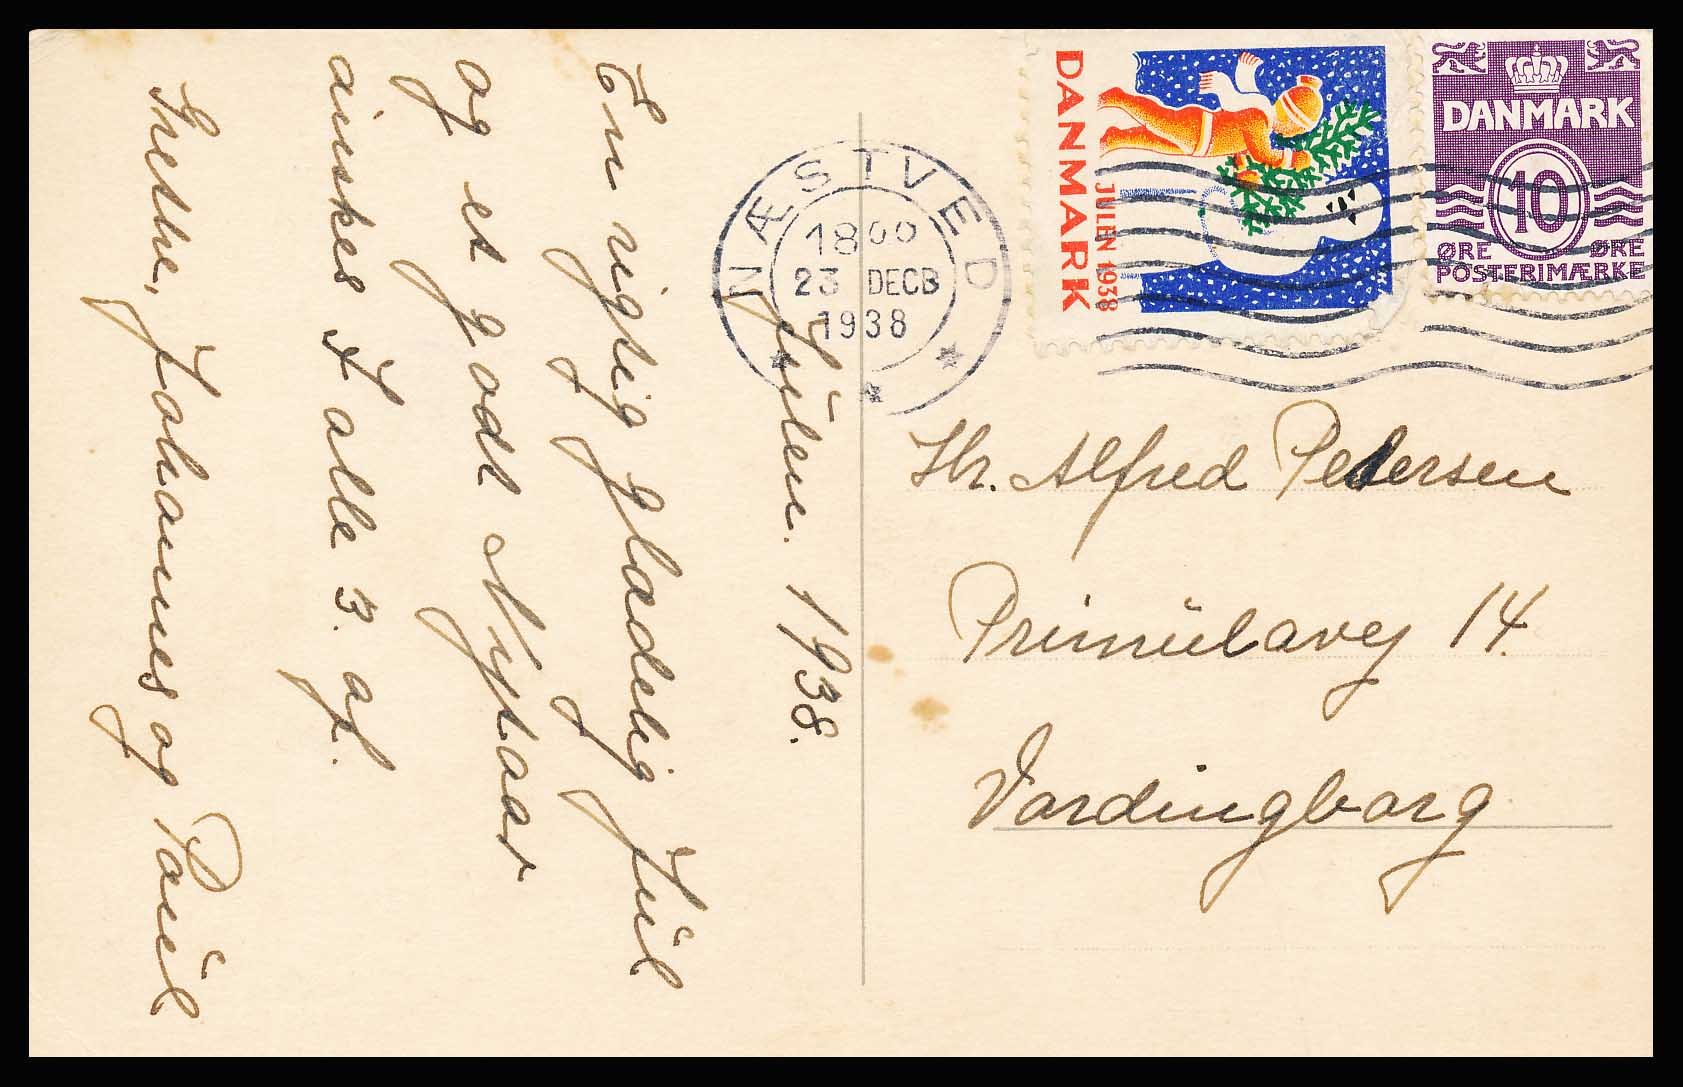 Julen. 1938.
En rigtig glædelig Jul
og et godt Nytaar
ønskes I alle 3. af.
Grethe, Johannes og Poul
NÆSTVED
18 00
23 DECB
1938
DANMARK
JULEN 1938
DANMARK
10
ØRE ØRE
POSTFRIMÆRKE
Hr. Alfred Petersen
Primulavej 14.
Vordingborg